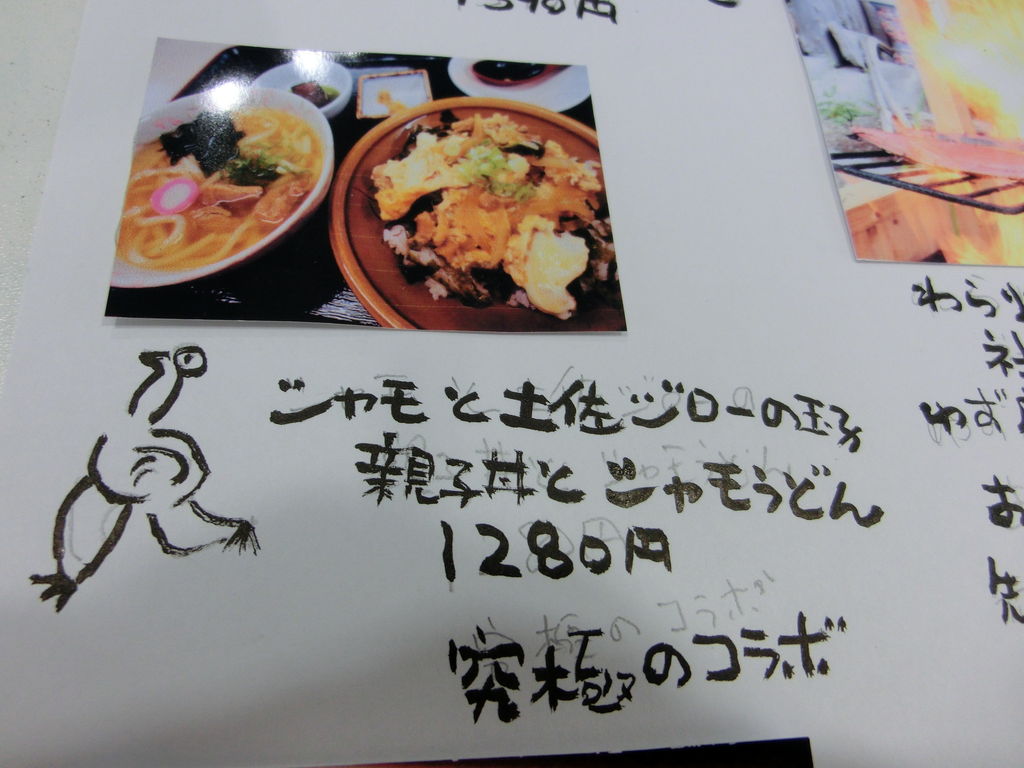 1390円
ジャモと土佐ジローの玉子
親子丼とジャモうどん
1280円
究極のコラボ
わらり
社
わず
お
先